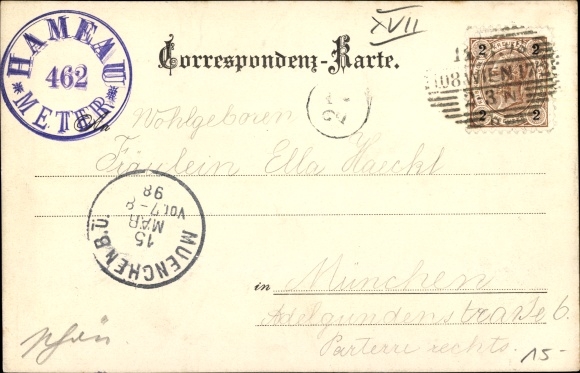 XVII
HAMEAU
462
METER
Correspondenz-Karte.
2 2
WIEN 17
2 2
An
Wohlgeboren
Fräulein Ella Haeckl
MUENCHEN.B.Ü.
15
MÄR
VOR.7-8
98
in München
Adelgundenstraße 6.
Parterre rechts.
15-